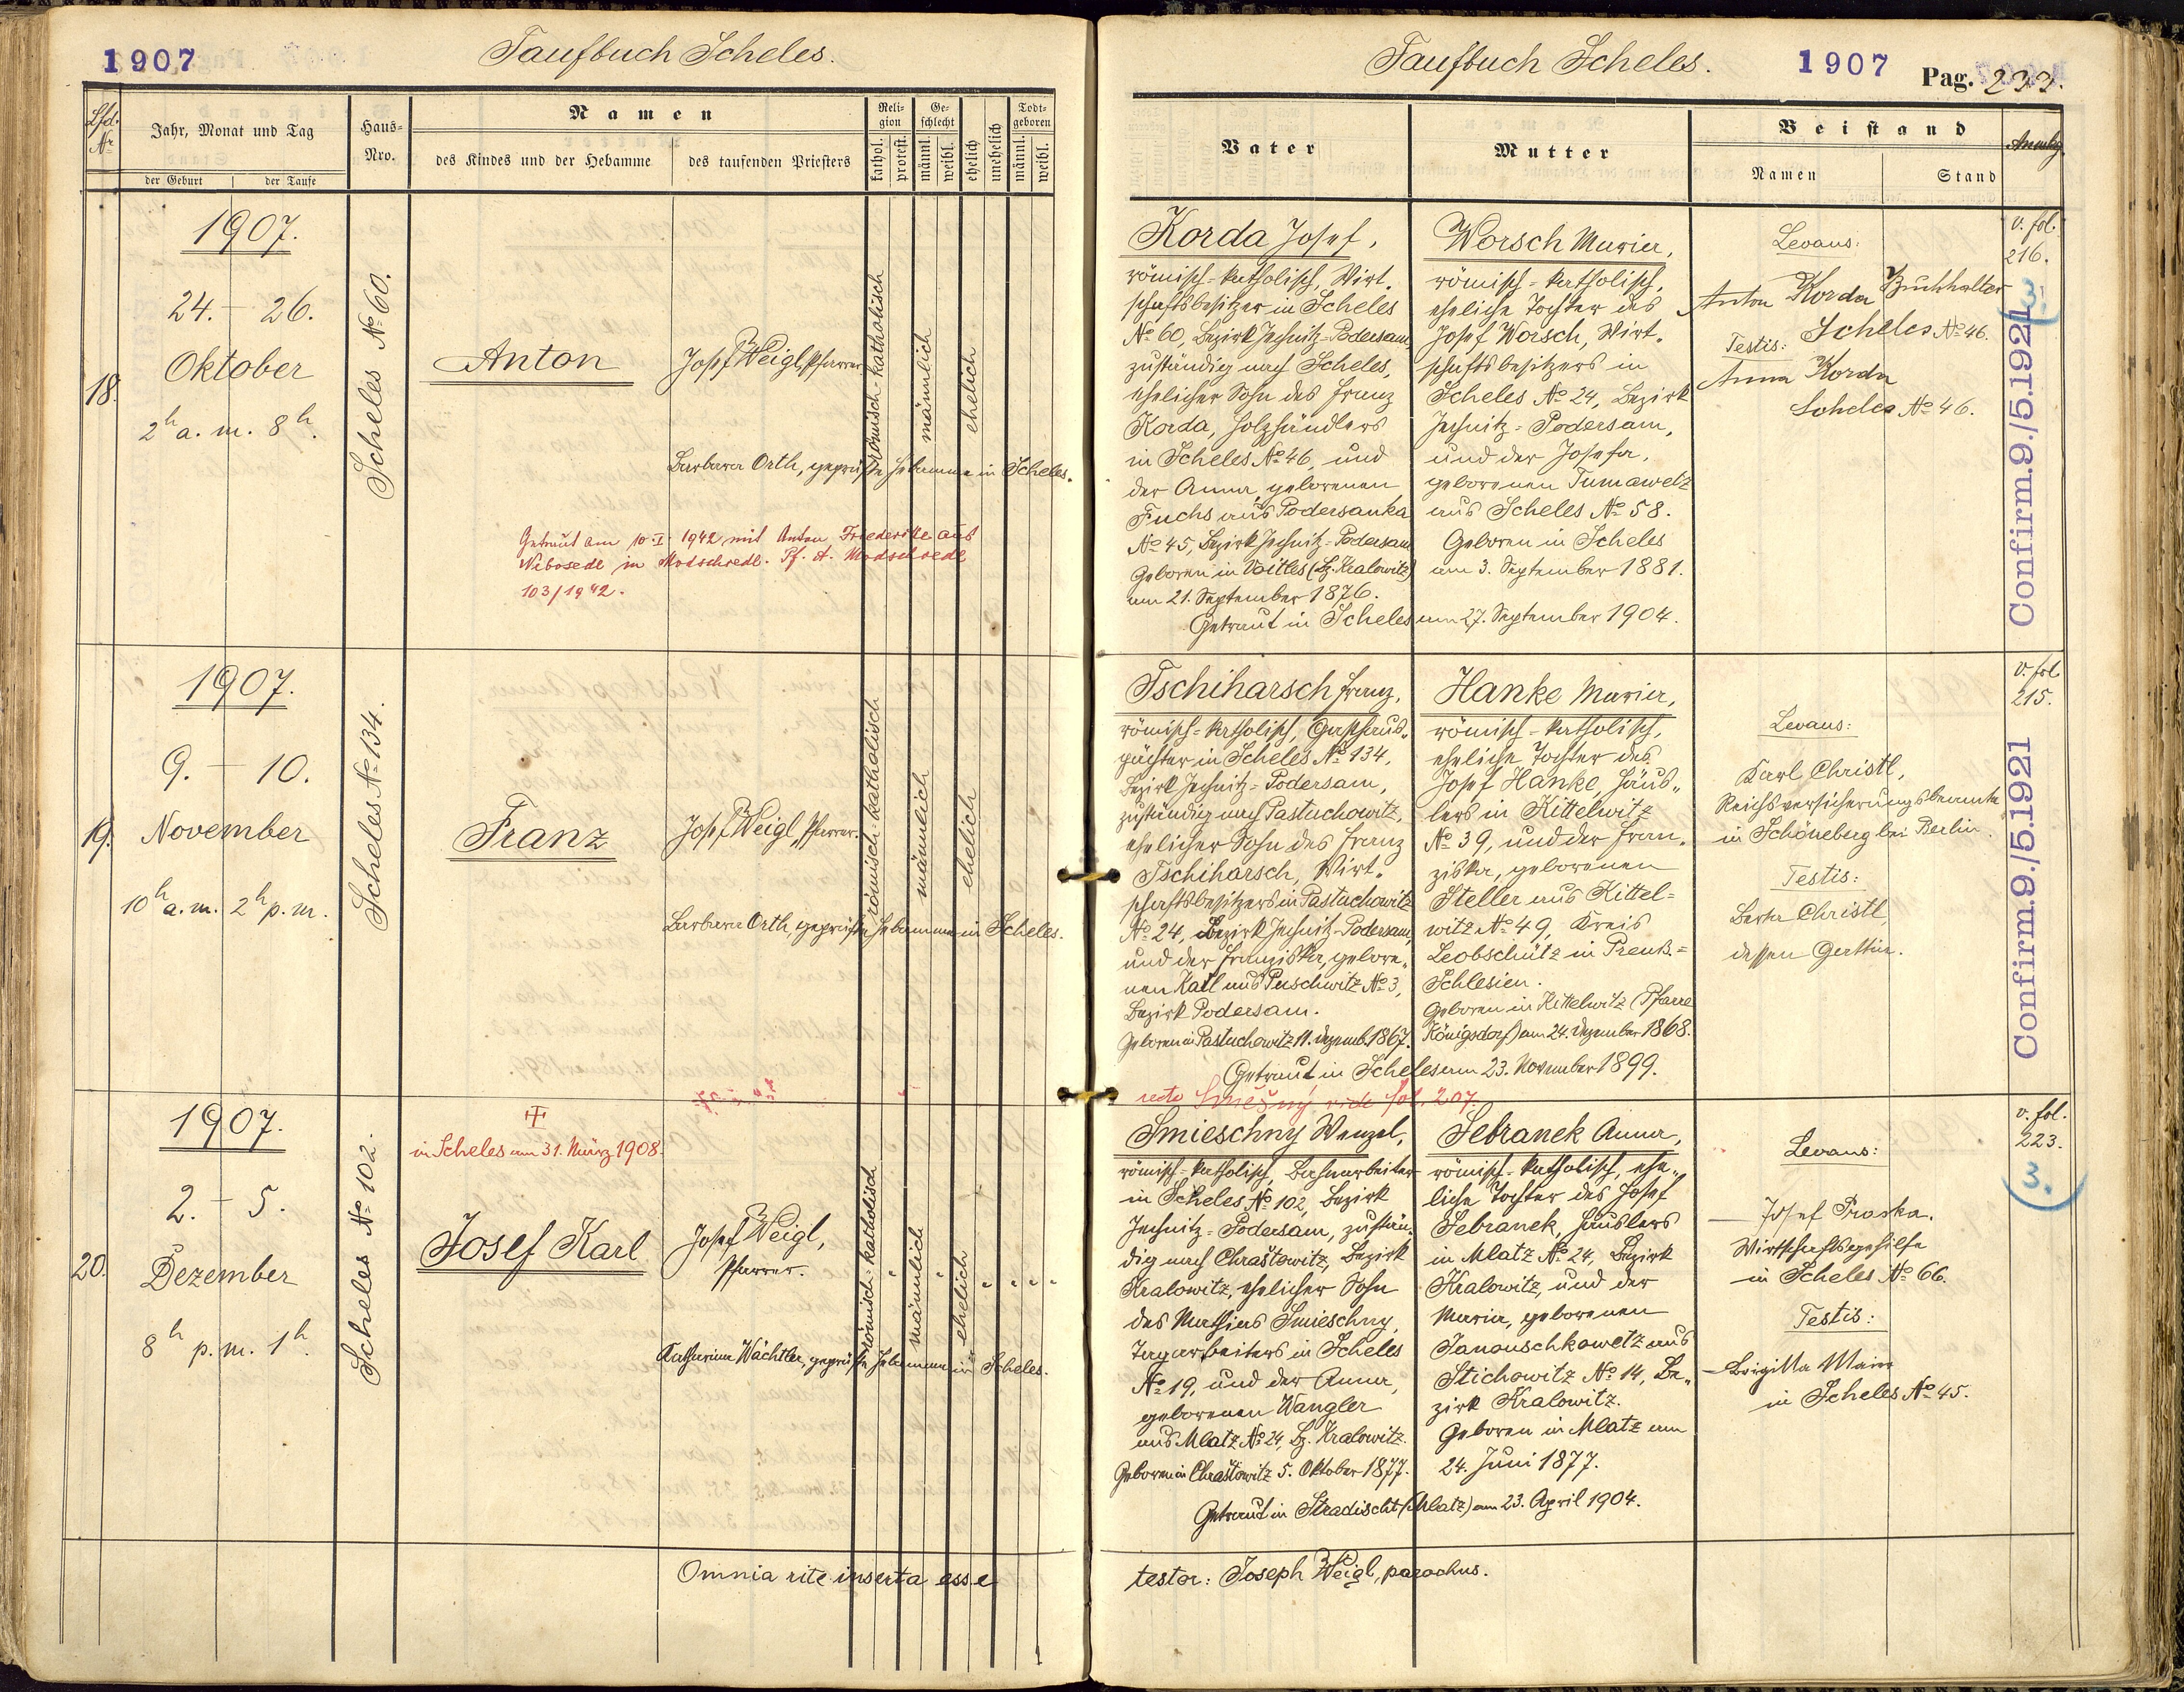 1907
Taufbuch Scheles.
Lfd. Nr.
Jahr, Monat und Tag
der Geburt
der Taufe
Haus-
Nro.
Namen
des Kindes und der Hebamme
des taufenden Priesters
Reli-
gion
kathol.
protest.
Ge-
schlecht
männl.
weibl.
ehelich
unehelich
Todt-
geboren
männl.
weibl.
18.
1907.
24. – 26.
Oktober
2h a. m. 8h.
Scheles No 60.
Anton
Josef Weigl, Pfarrer.
römisch-katholisch
männlich
ehelich
Barbara Orth, geprüfte Hebamme in Scheles.
Getraut am 10-I-1942 mit Anton Friederike aus
in Modschiedl. Pf. A. Modschiedl
103/1942.
19.
1907.
9. – 10.
November
10h a. m. 2h p. m.
Scheles No 134.
Franz
Josef Weigl, Pfarrer.
römisch-katholisch
männlich
ehelich
Barbara Orth, geprüfte Hebamme in Scheles.
20.
1907.
2. – 5.
Dezember
8h p. m. 1h.
Scheles No 102.
in Scheles am 31. März 1908.
Josef Karl
Josef Weigl,
Pfarrer.
römisch-katholisch
männlich
ehelich
Katharina Wächtler, geprüfte Hebamme in Scheles.
Omnia rite inserta esse
Taufbuch Scheles.
1907
Pag. 233.
Vater
Mutter
Beistand
Namen
Stand
Anmkg.
Korda Josef,
römisch-katholisch, Wirt-
schaftsbesitzer in Scheles
No 60, Bezirk Jechnitz-Podersam,
zuständig nach Scheles,
ehelicher Sohn des Franz
Korda, Holzhändlers
in Scheles No 46, und
der Anna, geborenen
Fuchs aus Podersanka
No 45, Bezirk Jechnitz-Podersam
Geboren in Voitles (Bz. Kralowitz)
am 21. September 1876.
Worsch Maria,
römisch-katholisch,
eheliche Tochter des
Josef Worsch, Wirt-
schaftsbesitzers in
Scheles No 24, Bezirk
Jechnitz-Podersam,
und der Josefa,
geborenen Tumawetz
aus Scheles No 58.
Geboren in Scheles
am 3. September 1881.
Getraut in Scheles am 27. September 1904.
Levans:
Anton Korda Buchhalter
Scheles No 46.
Testis:
Anna Korda
Scheles No 46.
v. fol.
216.
3.
Confirm.9./5.1921
Tschiharsch Franz,
römisch-katholisch, Gasthaus-
pächter in Scheles No 134,
Bezirk Jechnitz-Podersam,
zuständig nach Pastuchowitz,
ehelicher Sohn des Franz
Tschiharsch, Wirt-
schaftsbesitzers in Pastuchowitz
No 24, Bezirk Jechnitz-Podersam,
und der Franziska, gebore-
nen Karl aus Puschwitz No 3,
Bezirk Podersam.
Geboren in Pastuchowitz 11. Dezemb. 1867.
Hanke Maria,
römisch-katholisch,
eheliche Tochter des
Josef Hanke, Häus-
lers in Kittelwitz
No 39, und der Fran-
ziska, geborenen
Steller aus Kittel-
witz No 49, Kreis
Leobschütz in Preuß.-
Schlesien.
Geboren in Kittelwitz (Pfarre
Königsdorf) am 24. Dezember 1868.
Getraut in Scheles am 23. November 1899.
Levans:
Karl Christl,
Reichsversicherungsbeamte
in Schöneberg bei Berlin.
Testis:
Berta Christl,
dessen Gattin.
v. fol.
215.
Confirm.9./5.1921
recte Smiešný vide fol. 207.
Smieschny Wenzel,
römisch-katholisch, Bahnarbeiter
in Scheles No 102, Bezirk
Jechnitz-Podersam, zustän-
dig nach Chrastowitz, Bezirk
Kralowitz, ehelicher Sohn
des Mathias Smieschny,
Tagarbeiters in Scheles
No 19, und der Anna,
geborenen Wangler
aus Mlatz No 24, Bz. Kralowitz.
Geboren in Chrastowitz 5. Oktober 1877.
Sebranek Anna,
römisch-katholisch, ehe-
liche Tochter des Josef
Sebranek, Häuslers
in Mlatz No 24, Bezirk
Kralowitz, und der
Maria, geborenen
Janouschkowetz aus
Stichowitz No 14, Be-
zirk Kralowitz.
Geboren in Mlatz am
24. Juni 1877.
Getraut in Stradischt (Mlatz) am 23. April 1904.
Levans:
Josef Proska.
Wirtschaftsgehilfe
in Scheles No 66.
Testis:
Brigitta Maier
in Scheles No 45.
v. fol.
223.
3.
testor: Joseph Weigl, parochus.